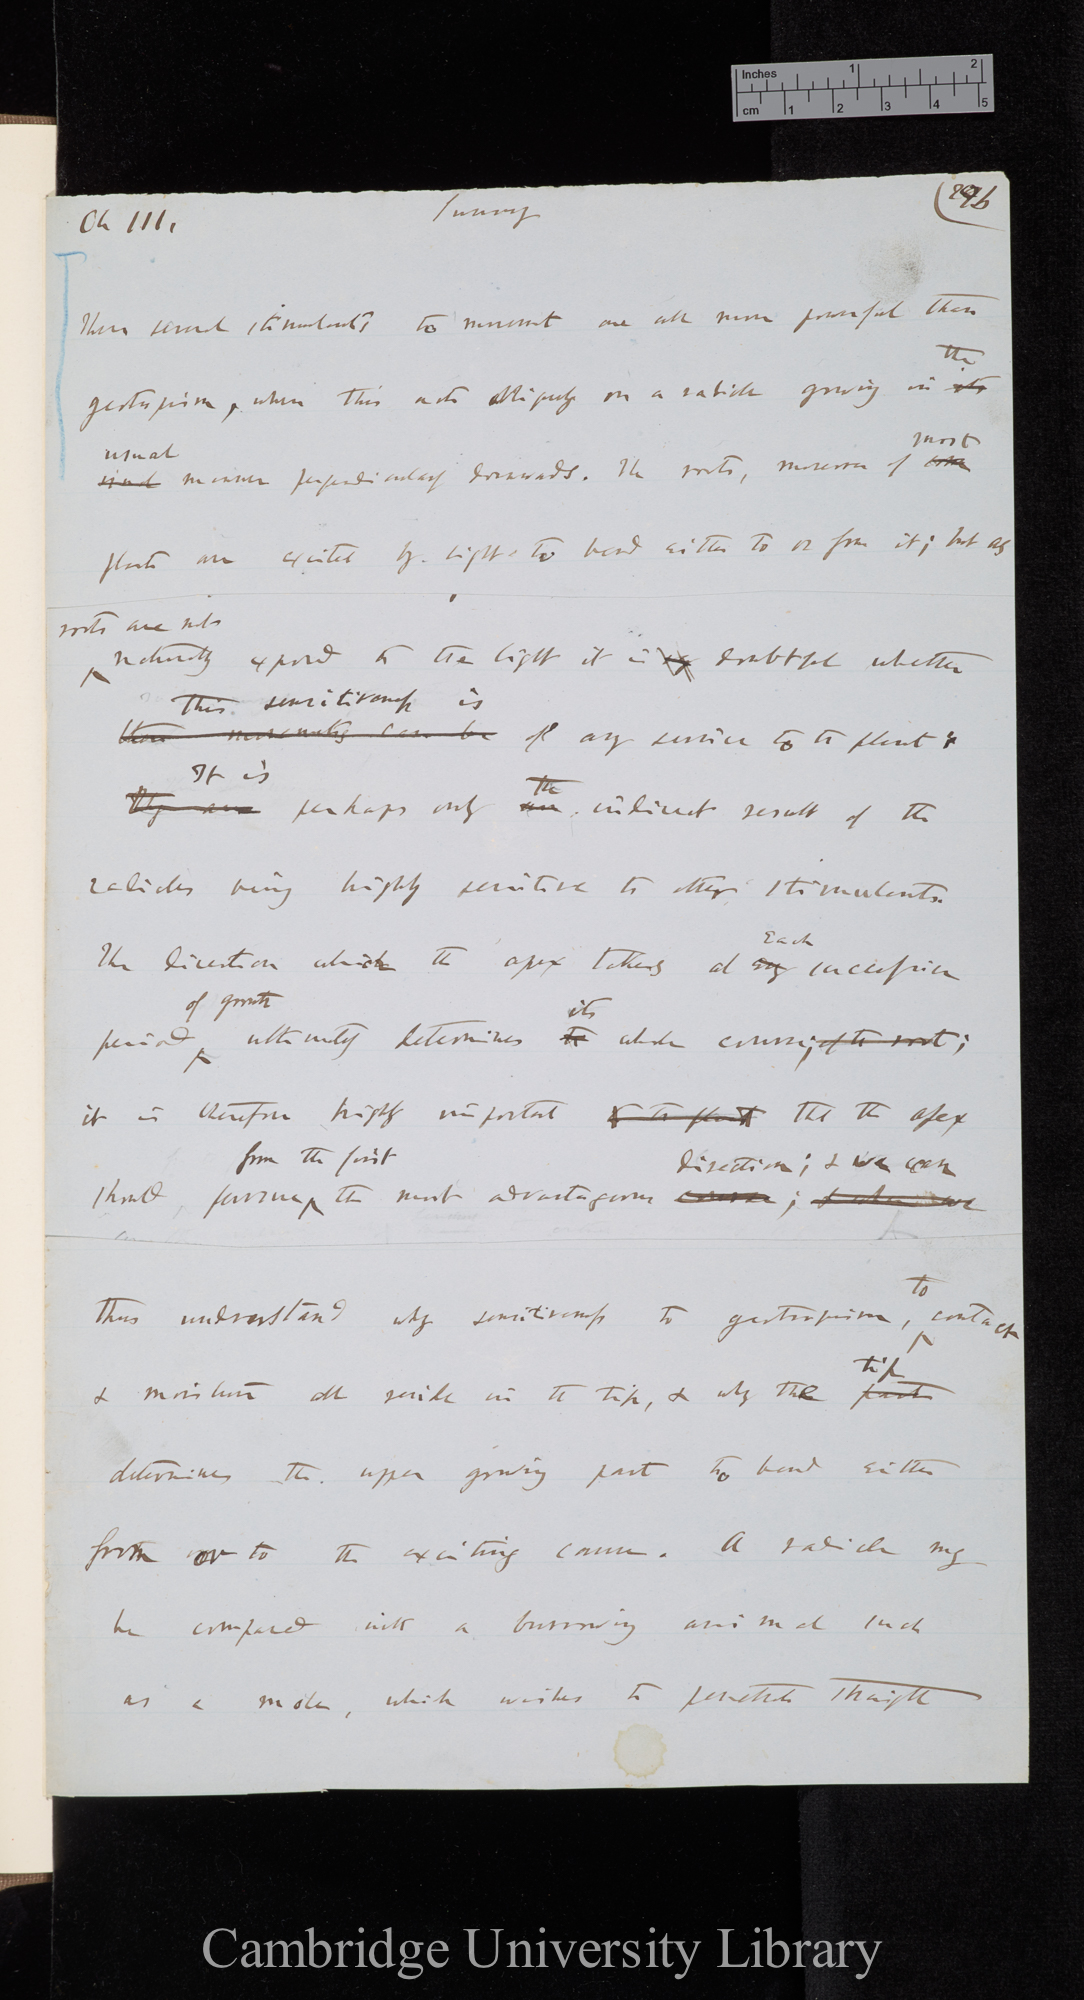 Inches 1 2
cm 1 2 3 4 5
Ch III.
Summary
These several stimulants to movement are all more powerful than
the
geotropism, when this acts obliquely on a radicle growing in its
usual most
usual manner perpendicularly downwards. The roots, moreover of some
plants are excited by light to bend either to or from it; but as
roots are not
naturally exposed to the light it is doubtful whether
this sensitiveness is
these movements can be of any service to the plant
It is the
They are perhaps only an indirect result of the
radicles being highly sensitive to other stimulants.
The direction which the apex takes at each succession
of growth its
period ultimately determines the whole course; of the root;
it is therefore highly important to the plant that the apex
from the first direction; & we can
should pursue the most advantageous course; & when we
to
thus understand why sensitiveness to geotropism, contact
tip
& moisture all reside in the tip, & why the part
determines the upper growing part to bend either
from or to the exciting cause. A radicle may
be compared with a burrowing animal such
as a mole, which wishes to penetrate straight
Cambridge University Library